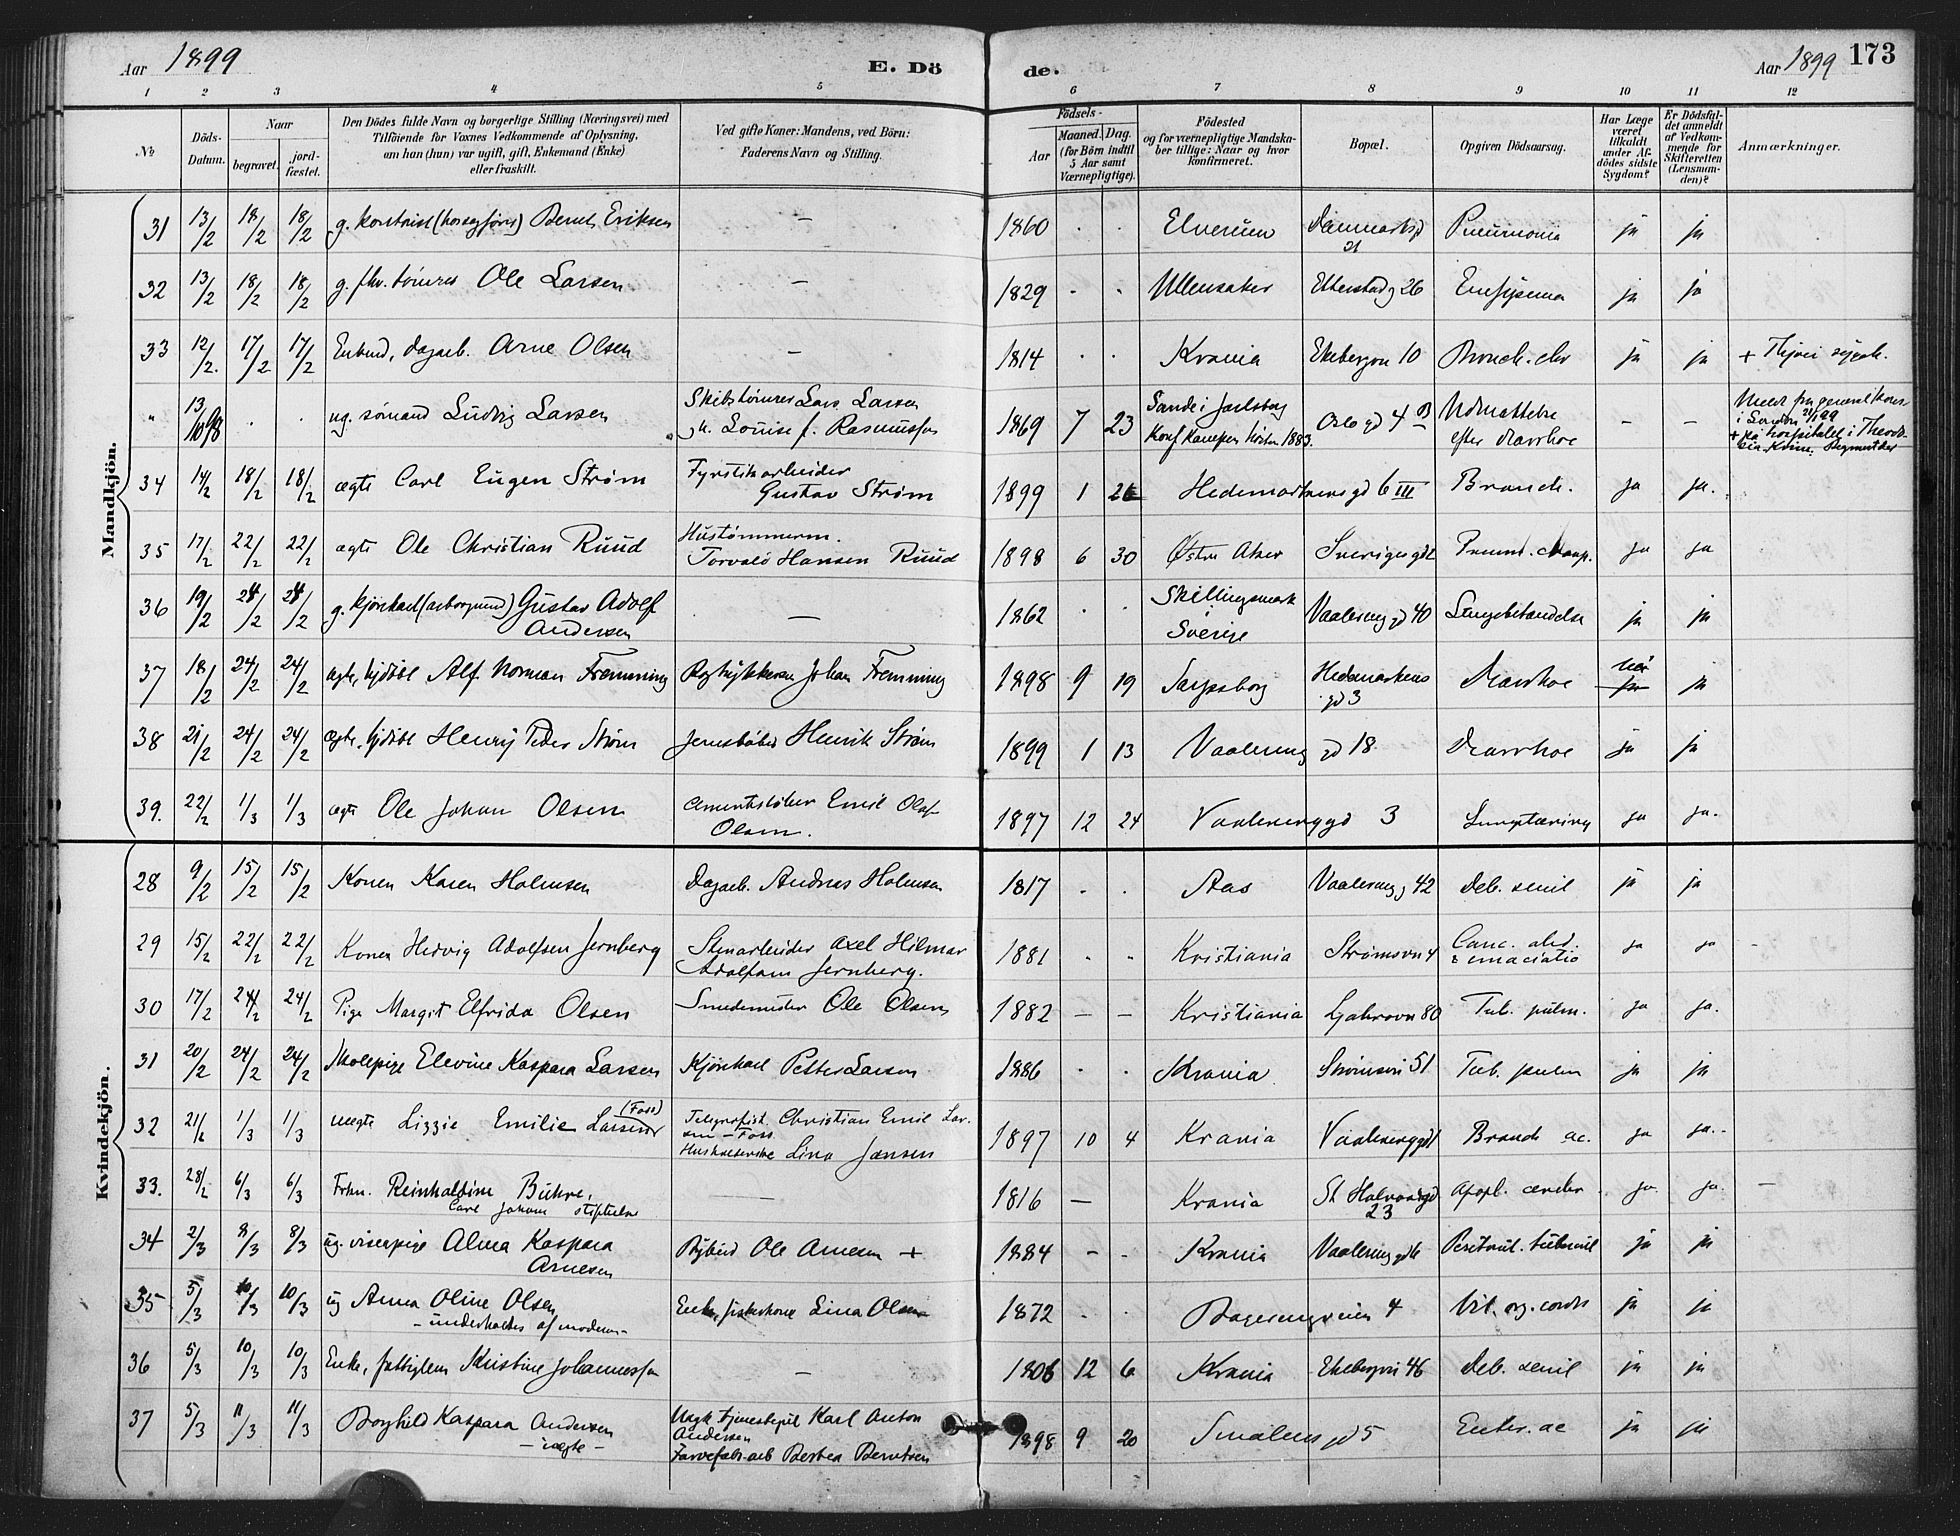 Aar 1899 E. Dö de. Aar 1899 173
1 2 3 4 5 6 7 8 9 10 11 12
No
Döds-Datum.
Naar
begravet.
jord-fæstet.
Den Dödes fulde Navn og borgerlige Stilling (Næringsvei) med
Tilföiende for Voxnes Vedkommende af Oplysning,
om han (hun) var ugift, gift, Enkemand (Enke)
eller fraskilt.
Ved gifte Koner: Mandens, ved Börn:
Faderens Navn og Stilling.
Födsels-
Aar
Maaned. Dag.
(for Börn indtil
5 Aar samt
Værnepligtige).
Födested
og for værnepligtige Mandska-
ber tillige: Naar og hvor
konfirmeret.
Bopæl.
Opgiven Dödsaarsag.
Har Læge
været
tilkaldt
under Af-
dödes sidste
Sygdom?
Er Dödsfal-
det anmeldt
af Vedkom-
mende for
Skifteretten
(Lensman-
den)?
Anmærkninger.
Mandkjön.
31 13/2 18/2 18/2 g. Bernt Eriksen — 1860 . . Elverum 21 Pneumonia ja ja
32 13/2 18/2 18/2 g. fhv. tømrer Ole Larsen — 1829 . . Ullensaker Etterstadg 26 Emfysema ja ja
33 12/2 17/2 17/2 Enkemd, dagarb. Arne Olsen — 1814 . . Krania Ekebergvn 10 Bronch. chr ja ja
" 13/10 98 . . ug. sømand Ludvig Larsen Skibstømrer Lars Larsen
og h. Louise f. Rasmussen 1869 7 23 Sande i Jarlsberg
Konf Kampen høsten 1883. Oslo gd 4 B Udmattelse
efter diarrhoe — — Meldt fra generalkons
i London 21/1 99
+ paa hospitalet i Theodo-
sia Krim.
34 14/2 18/2 18/2 ægte Carl Eugen Strøm Fyrstikarbeider
Gustav Strøm 1899 1 26 Hedemarkens gd 6 III Bronch. ja ja.
35 17/2 22/2 22/2 ægte Ole Christian Ruud Hustømmerm.
Torvald Hansen Ruud 1898 6 30 Østre Aker Sverigesgd 2 Pneum. croup. ja ja
36 19/2 24/2 24/2 g. kjørekarl Gustav Adolf
Andersen — 1862 . . Skillingsmark
Sverige Vaalereng gd 40 Lungebetændelse ja ja
37 18/2 24/2 24/2 ægte, hjdøbt Alf Norman Fremming Bogtrykkersv Johan Fremming 1898 9 19 Sarpsborg Hedemarkens
gd 3 Diarrhoe nei ja ja
38 21/2 24/2 24/2 ægte, hjdøbt Henry Peder Strøm Jernstøber Henrik Strøm 1899 1 13 Vaalereng gd 18 Diarrhoe ja ja
39. 22/2 1/3 1/3 ægte Ole Johan Olsen Cementstøber Emil Olaf
Olsen. 1897 12 24 Vaalerenggd 3 Lungetæring ja ja.
Kvindekjön.
28 9/2 15/2 15/2 Konen Karen Holmsen Dagarb. Andreas Holmsen 1817 . . Aas Vaalereng g 42 Deb. senil ja ja
29 15/2 22/2 22/2 Konen Hedvig Adolfsen Jernberg Stenarbeider Axel Hilmar
Adolfsen Jernberg. 1881 . . Kristiania Strømsvn 4 Canc. abd.
& emaciatio ja ja
30 17/2 24/2 24/2 Pige Margit Elfrida Olsen Smedemester Ole Olsen 1882 — — Kristiania Ljabrovn 80 Tub. pulm. ja ja.
31 20/2 24/2 24/2 Skolepige Elevine Kaspara Larsen Kjørekarl Petter Larsen 1886 . . Krania Strømsvn 51 Tub. pulm ja ja
32 21/2 1/3 1/3 uægte Lizzie Emilie Larsen (Foss) Telegrafist Christian Emil Lar-
sen – Foss
Husholderske Lina Jansen 1897 10 4 Krania Vaalerenggd 1 Bronch ac. ja ja.
33. 28/2 6/3 6/3 Frkn. Reinhaldine Buhre,
Carl Johans stiftelse — 1816 — Krania St Halvardsgd
23 Apopl. cerebr. ja ja. —
34 2/3 8/3 8/3 ug. viserpige Alma Kaspara
Arnesen Bybud Ole Arnesen + 1884 — - Krania Vaalereng gd 6 Peritonit. tubercul ja ja
35 5/3 10/3 10/3 ug Anna Oline Olsen
– underholdes af moderen – Enke, fiskerkone Lina Olsen 1872 . . Bageringveien 4 Vit. org. cordis ja ja
36 5/3 10/3 10/3 Enke, fattiglem Kristine Johannessen — 1806 12 6 Krania Ekebergvn 46 Deb. senil ja ja
37 5/3 11/3 11/3 Borghild Kaspara Andersen
– uægte – Karl Anton
Andersen
Farvefabr.arb Berntsen 1898 9 20 Smalens gd 5 Enter. ac ja ja